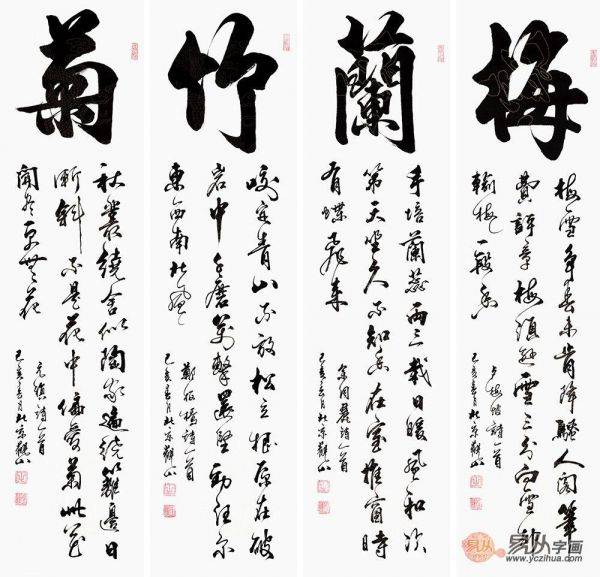 梅
梅雪争春未肯降騷人閣筆
費評章梅須遜雪三分白雪卻
輸梅一段香
盧梅坡詩一首
己亥
蘭
手培蘭蕊兩三載日暖風和次
第天坐久不知香在室推窗時
有蝶飛來
余同麓詩一首
己亥
竹
咬定青山不放松立根原在破
岩中千磨萬擊還堅勁任爾
東西南北風
鄭板橋詩一首
己亥
菊
秋叢繞舍似陶家遍繞籬邊日
漸斜不是花中偏愛菊此花
開盡更無花
元稹詩一首
己亥
易从字画
www.yczihua.com